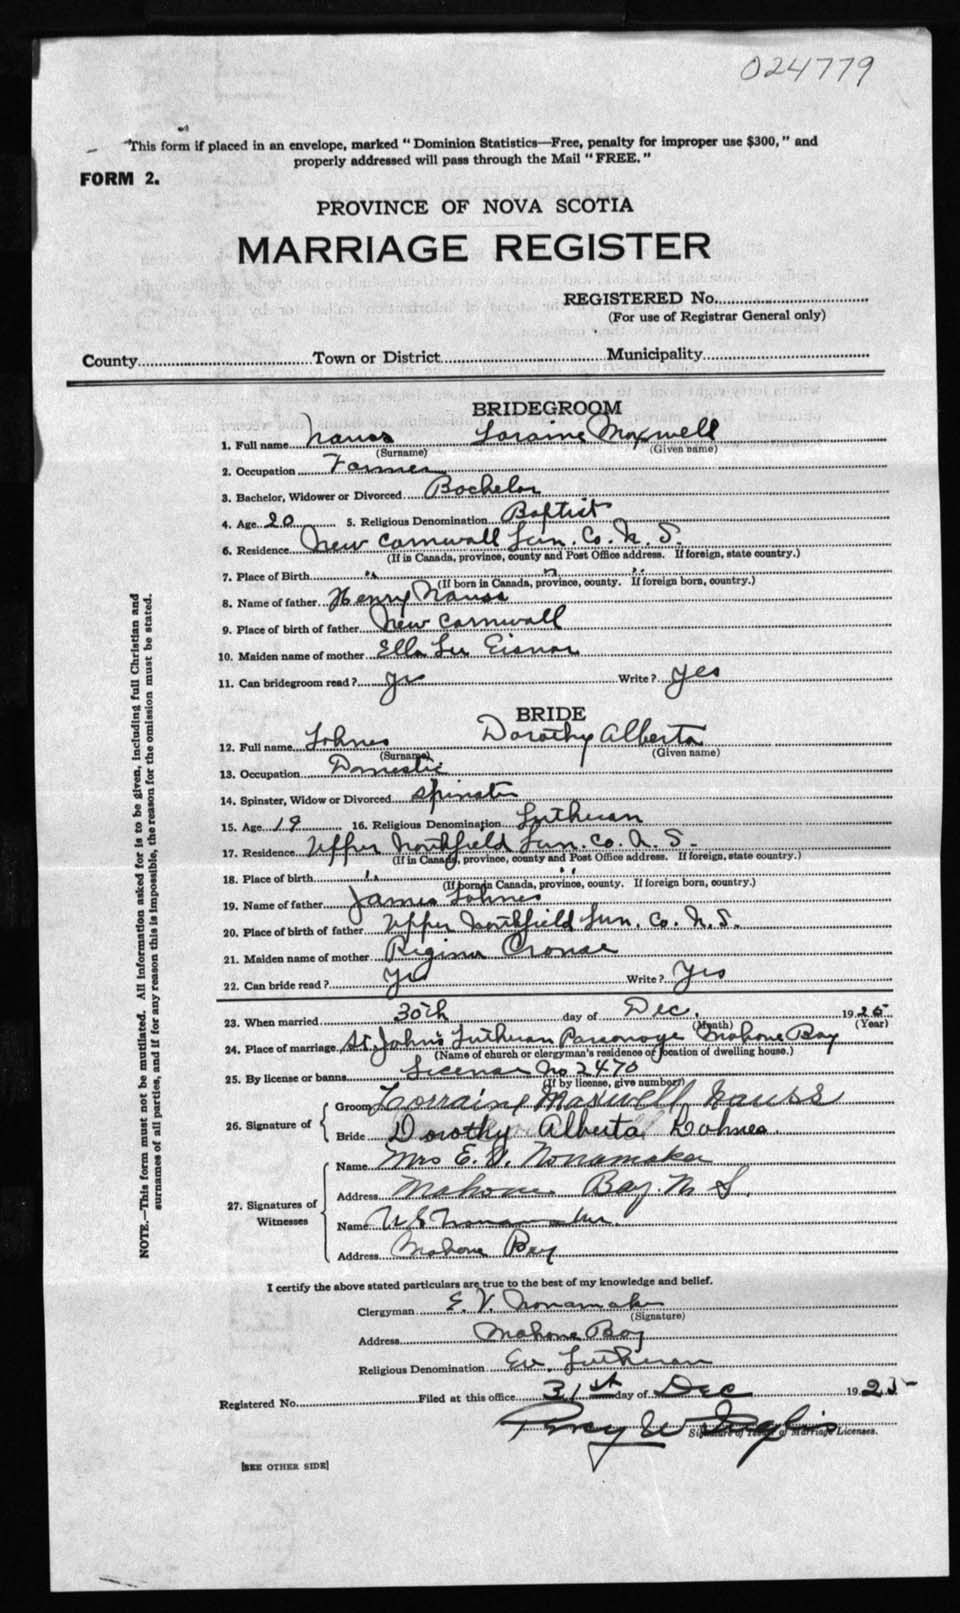 024779
This form if placed in an envelope, marked "Dominion Statistics—Free, penalty for improper use $300," and
properly addressed will pass through the Mail "FREE."
FORM 2.
PROVINCE OF NOVA SCOTIA
MARRIAGE REGISTER
REGISTERED No.
(For use of Registrar General only)
County Town or District Municipality
BRIDEGROOM
1. Full name Nauss Loraine Maxwell
(Surname) (Given name)
2. Occupation Farmer
3. Bachelor, Widower or Divorced Bachelor
4. Age 20 5. Religious Denomination Baptist
6. Residence New Cornwall Lun. Co. N. S.
(If in Canada, province, county and Post Office address. If foreign, state country.)
7. Place of Birth " " "
(If born in Canada, province, county. If foreign born, country.)
8. Name of father Henry Nauss
9. Place of birth of father New Cornwall
10. Maiden name of mother Ella Eisnor
11. Can bridegroom read? yes Write? yes
BRIDE
12. Full name Lohnes Dorothy Alberta
(Surname) (Given name)
13. Occupation Domestic
14. Spinster, Widow or Divorced Spinster
15. Age 19 16. Religious Denomination Lutheran
17. Residence Upper Northfield Lun. Co. N. S.
(If in Canada, province, county and Post Office address. If foreign, state country.)
18. Place of birth " "
(If born in Canada, province, county. If foreign born, country.)
19. Name of father James Lohnes
20. Place of birth of father Upper Northfield Lun. Co. N. S.
21. Maiden name of mother Regina Crouse
22. Can bride read? yes Write? yes
23. When married 30th day of Dec. 1925
(Month) (Year)
24. Place of marriage St. John's Lutheran Parsonage Mahone Bay
(Name of church or clergyman's residence or location of dwelling house.)
25. By license or banns License No 2470
(If by license, give number)
26. Signature of
Groom Lorraine Maxwell Nauss
Bride Dorothy Alberta Lohnes
27. Signatures of Witnesses
Name Mrs E. V. Nonamaker
Address Mahone Bay. N. S.
Name Nonamaker.
Address Mahone Bay
I certify the above stated particulars are true to the best of my knowledge and belief.
Clergyman E. V. Nonamaker
(Signature)
Address Mahone Bay
Religious Denomination Ev. Lutheran
Registered No. Filed at this office 31st day of Dec 1925
Percy W Inglis
Signature of Issuer of Marriage Licenses.
[SEE OTHER SIDE]
NOTE.—This form must not be mutilated. All information asked for is to be given, including full Christian and
surnames of all parties, and if for any reason this is impossible, the reason for the omission must be stated.